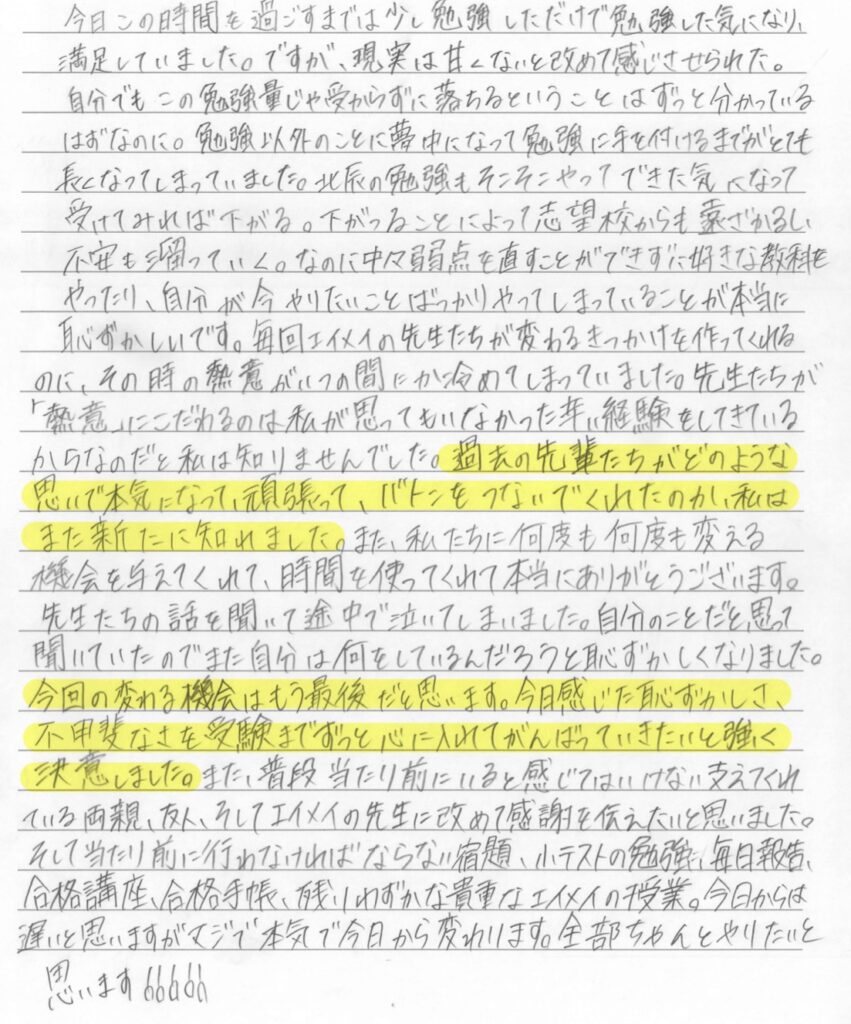 今日この時間を過ごすまでは少し勉強しただけで勉強した気になり、
満足していました。ですが、現実は甘くないと改めて感じさせられた。
自分でもこの勉強量じゃ受からずに落ちるということはずっと分かっている
はずなのに。勉強以外のことに夢中になって勉強に手を付けるまでがとても
長くなってしまっていました。北辰の勉強もそこそこやってできた気になって
受けてみれば下がる。下がつることによって志望校からも遠ざかるし
不安も溜っていく。なのに中々弱点を直すことができずに好きな教科を
やったり、自分が今やりたいことばっかりやってしまっていることが本当に
恥ずかしいです。毎回エイメイの先生たちが変わるきっかけを作ってくれる
のに、その時の熱意がいつの間にか冷めてしまっていました。先生たちが
「熱意」にこだわるのは私が思ってもいなかった辛い経験をしてきている
からなのだと私は知りませんでした。過去の先輩たちがどのような
思いで本気になって、頑張って、バトンをつないでくれたのか、私は
また新たに知れました。また、私たちに何度も何度も変える
機会を与えてくれて、時間を使ってくれて本当にありがとうございます。
先生たちの話を聞いて途中で泣いてしまいました。自分のことだと思って
聞いていたのでまた自分は何をしているんだろうと恥ずかしくなりました。
今回の変わる機会はもう最後だと思います。今日感じた恥ずかしさ、
不甲斐なさを受験までずっと心に入れてがんばっていきたいと強く
決意しました。また、普段当たり前にいると感じてはいけない支えてくれ
ている両親、友人、そしてエイメイの先生に改めて感謝を伝えたいと思いました。
そして当たり前に行わなければならない宿題、小テストの勉強、毎日報告、
合格講座、合格手帳、残りわずかな貴重なエイメイの授業。今日からは
遅いと思いますがマジで本気で今日から変わります。全部ちゃんとやりたいと
思います